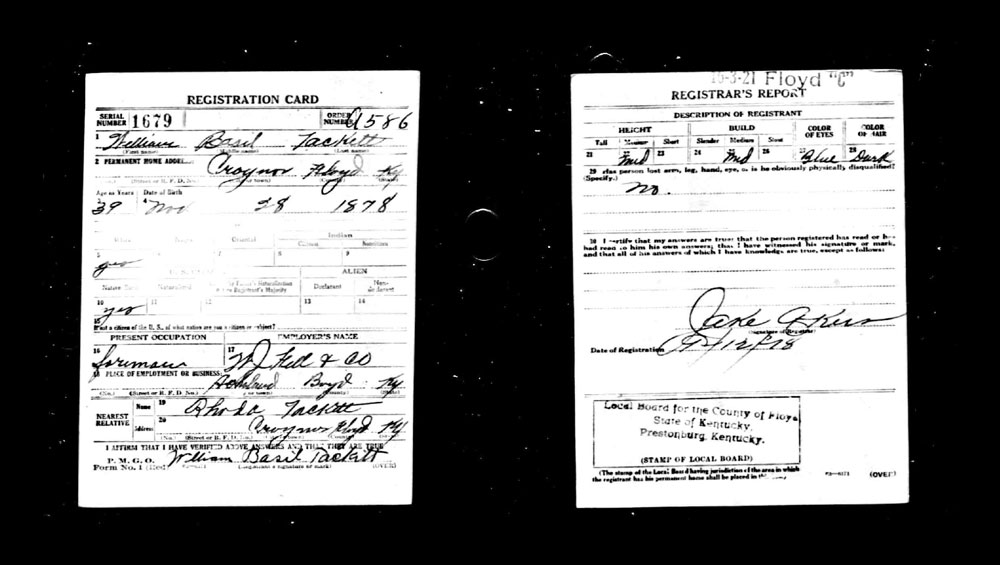 REGISTRATION CARD
SERIAL NUMBER 1679 ORDER NUMBER A586
1 William Basil Tackett
(First name) (Middle name) (Last name)
2 PERMANENT HOME ADDRESS
Craynor Floyd Ky
(Street or R. F. D. No.)
Age in Years Date of Birth
39 4 Nov 28 1878
Indian
White Negro Oriental Citizen Noncitizen
5 6 7 8 9
yes
ALIEN
Native Born Naturalized Declarant
10 11 12 13 14
yes
15
If not a citizen of the U. S., of what nation are you a citizen or subject?
PRESENT OCCUPATION EMPLOYER'S NAME
16 foreman 17 & Co
18 PLACE OF EMPLOYMENT OR BUSINESS:
Boyd Ky
(No.) (Street or R. F. D. No.)
NEAREST RELATIVE Name 19 Rhoda Tackett
Address 20 Craynor Floyd Ky
(No.) (Street or R. F. D. No.)
I AFFIRM THAT I HAVE VERIFIED ABOVE ANSWERS AND THAT THEY ARE TRUE
P. M. G. O.
Form No. 1 (Red) William Basil Tackett
(Registrant's signature or mark) (OVER)
15-3-21 Floyd "C"
REGISTRAR'S REPORT
DESCRIPTION OF REGISTRANT
HEIGHT BUILD COLOR OF EYES COLOR OF HAIR
Tall Medium Short Slender Medium Stout
21 22 Med 23 24 25 Med 26 27 Blue 28 Dark
29 Has person lost arm, leg, hand, eye, or is he obviously physically disqualified?
(Specify.)
No.
30 I certify that my answers are true; that the person registered has read or has
had read to him his own answers; that I have witnessed his signature or mark,
and that all of his answers of which I have knowledge are true, except as follows:
Jake Akers
(Signature of Registrar)
Date of Registration 9/12/18
Local Board for the County of Floyd
State of Kentucky,
Prestonburg, Kentucky.
(STAMP OF LOCAL BOARD)
(The stamp of the Local Board having jurisdiction of the area in which
the registrant has his permanent home shall be placed in
(OVER)